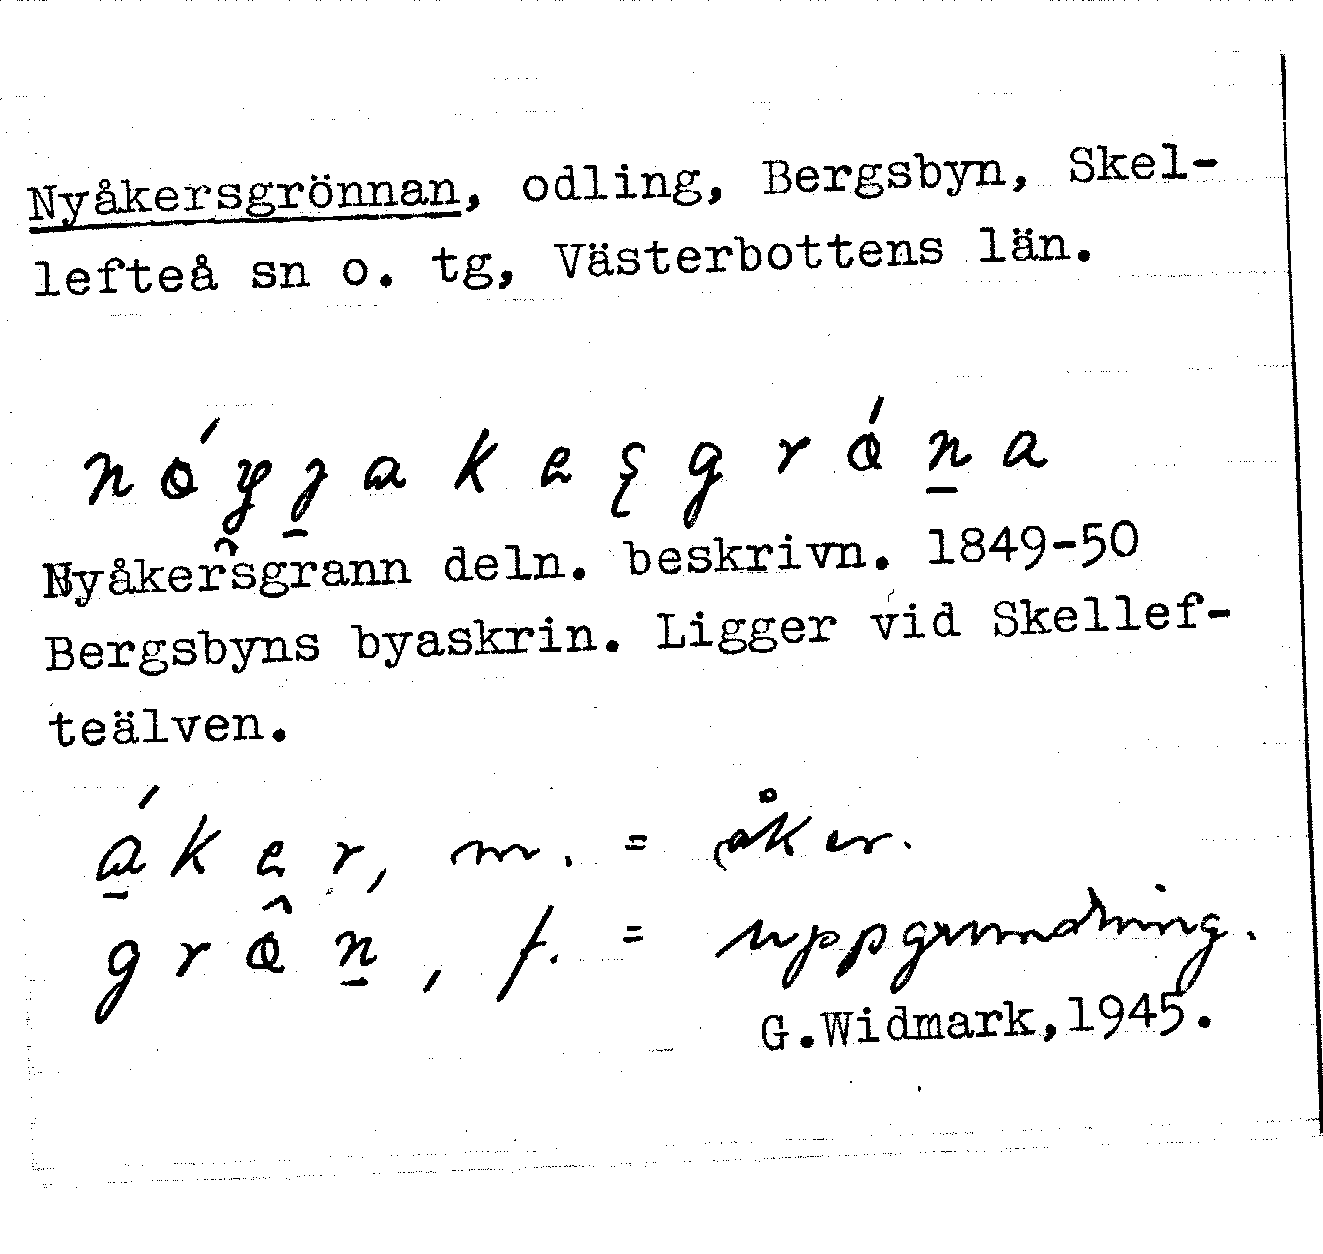 Nyåkersgrönnan, odling, Bergsbyn, Skel-
lefteå sn o. tg, Västerbottens län.
Nyåkersgrann deln. beskrivn. 1849-50
Bergsbyns byaskrin. Ligger vid Skellef-
teälven.
åker, m. = åker.
f. = uppgrundning.
G.Widmark,1945.